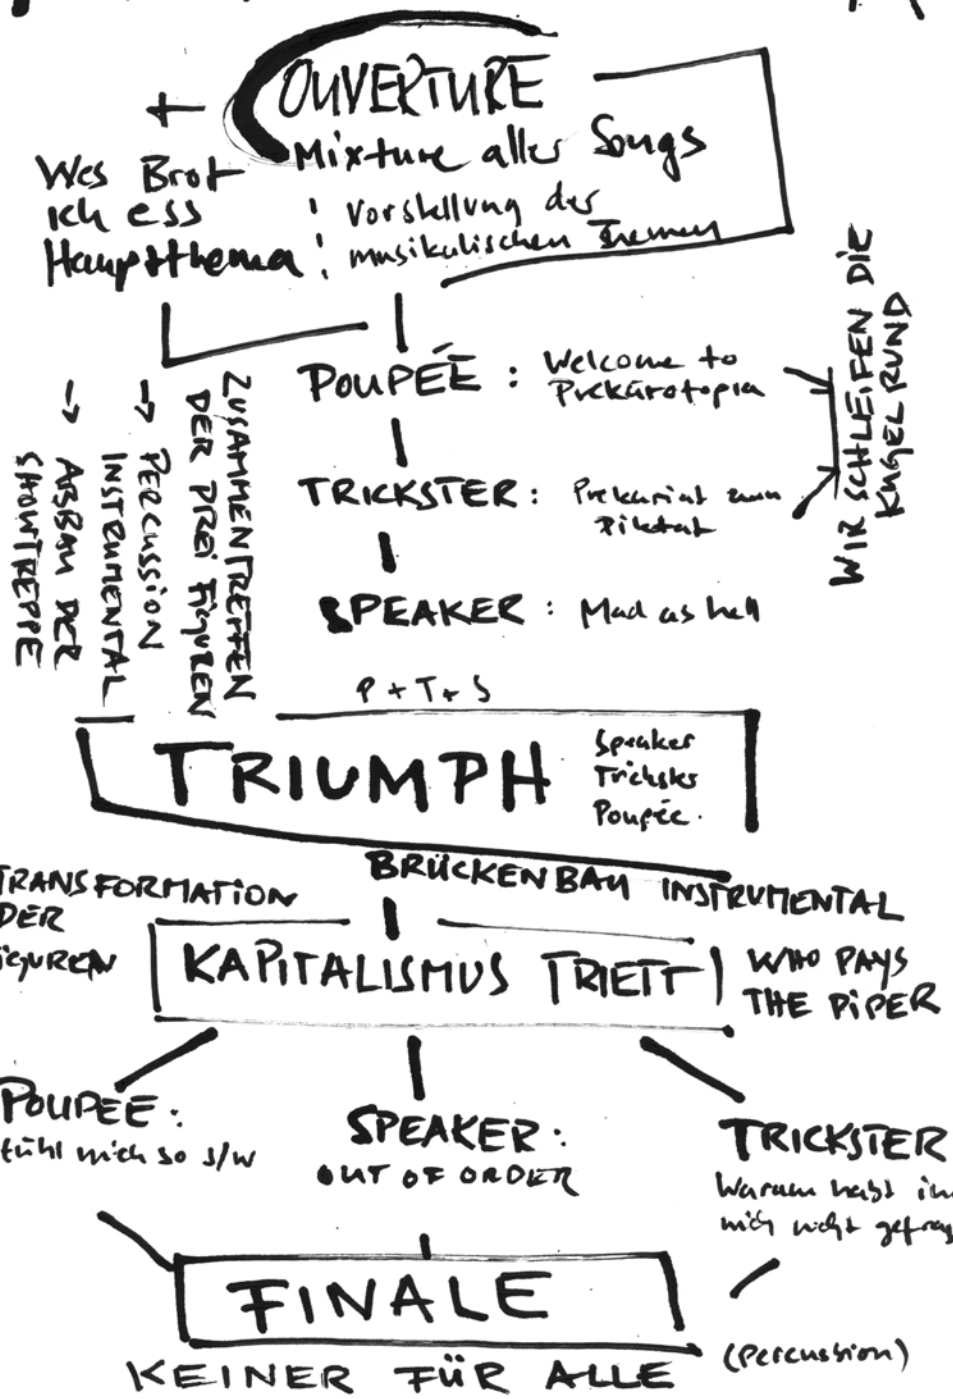 OUVERTURE
Mixture aller Songs
! Vorstellung der
! musikalischen Themen
+
Wes Brot
ich ess
Hauptthema
POUPÉE : Welcome to
Prekärotopia
TRICKSTER : Prekariat zum
Diktat
SPEAKER : Mad as hell
WIR SCHLEIFEN DIE
KUGEL RUND
ZUSAMMENTREFFEN
DER DREI FIGUREN
→ PERCUSSION
INSTRUMENTAL
→ ABBAU DER
SHOWTREPPE
P + T + S
TRIUMPH
Speaker
Trickster
Poupée.
BRÜCKENBAU INSTRUMENTAL
TRANSFORMATION
DER
IGUREN
KAPITALISMUS TRIETT
WHO PAYS
THE PIPER
POUPEE :
fühl mich so s/w
SPEAKER :
OUT OF ORDER
TRICKSTER
Warum habt ih
mich nicht gefrag
FINALE
KEINER FÜR ALLE
(percussion)